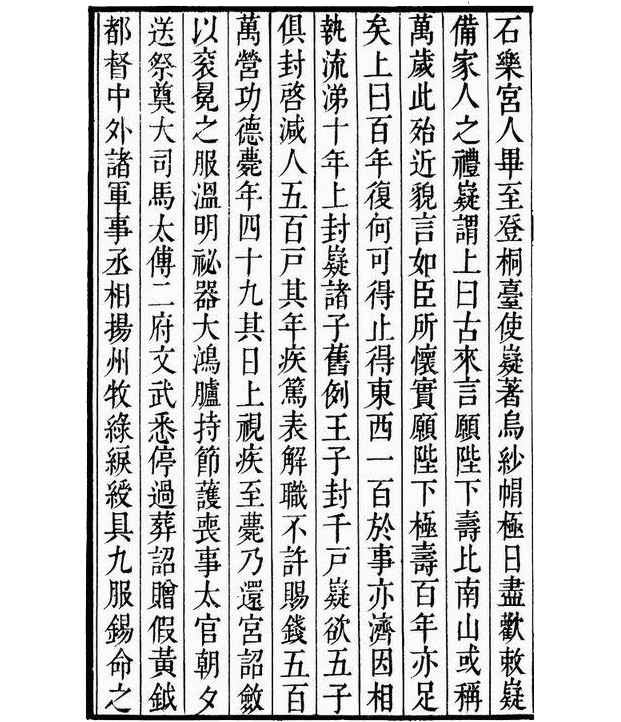 石樂宮人畢至登桐臺使嶷著烏紗帽極日盡歡敕嶷
備家人之禮嶷謂上曰古來言願陛下壽比南山或稱
萬歲此殆近貌言如臣所懷實願陛下極壽百年亦足
矣上曰百年復何可得止得東西一百於事亦濟因相
執流涕十年上封嶷諸子舊例王子封千戸嶷欲五子
俱封啓減人五百戸其年疾篤表解職不許賜錢五百
萬營功德薨年四十九其日上視疾至薨乃還宮詔斂
以衮冕之服溫明祕器大鴻臚持節護喪事太官朝夕
送祭奠大司馬太傅二府文武悉停過葬詔贈假黃鉞
都督中外諸軍事丞相揚州牧綠綟綬具九服錫命之